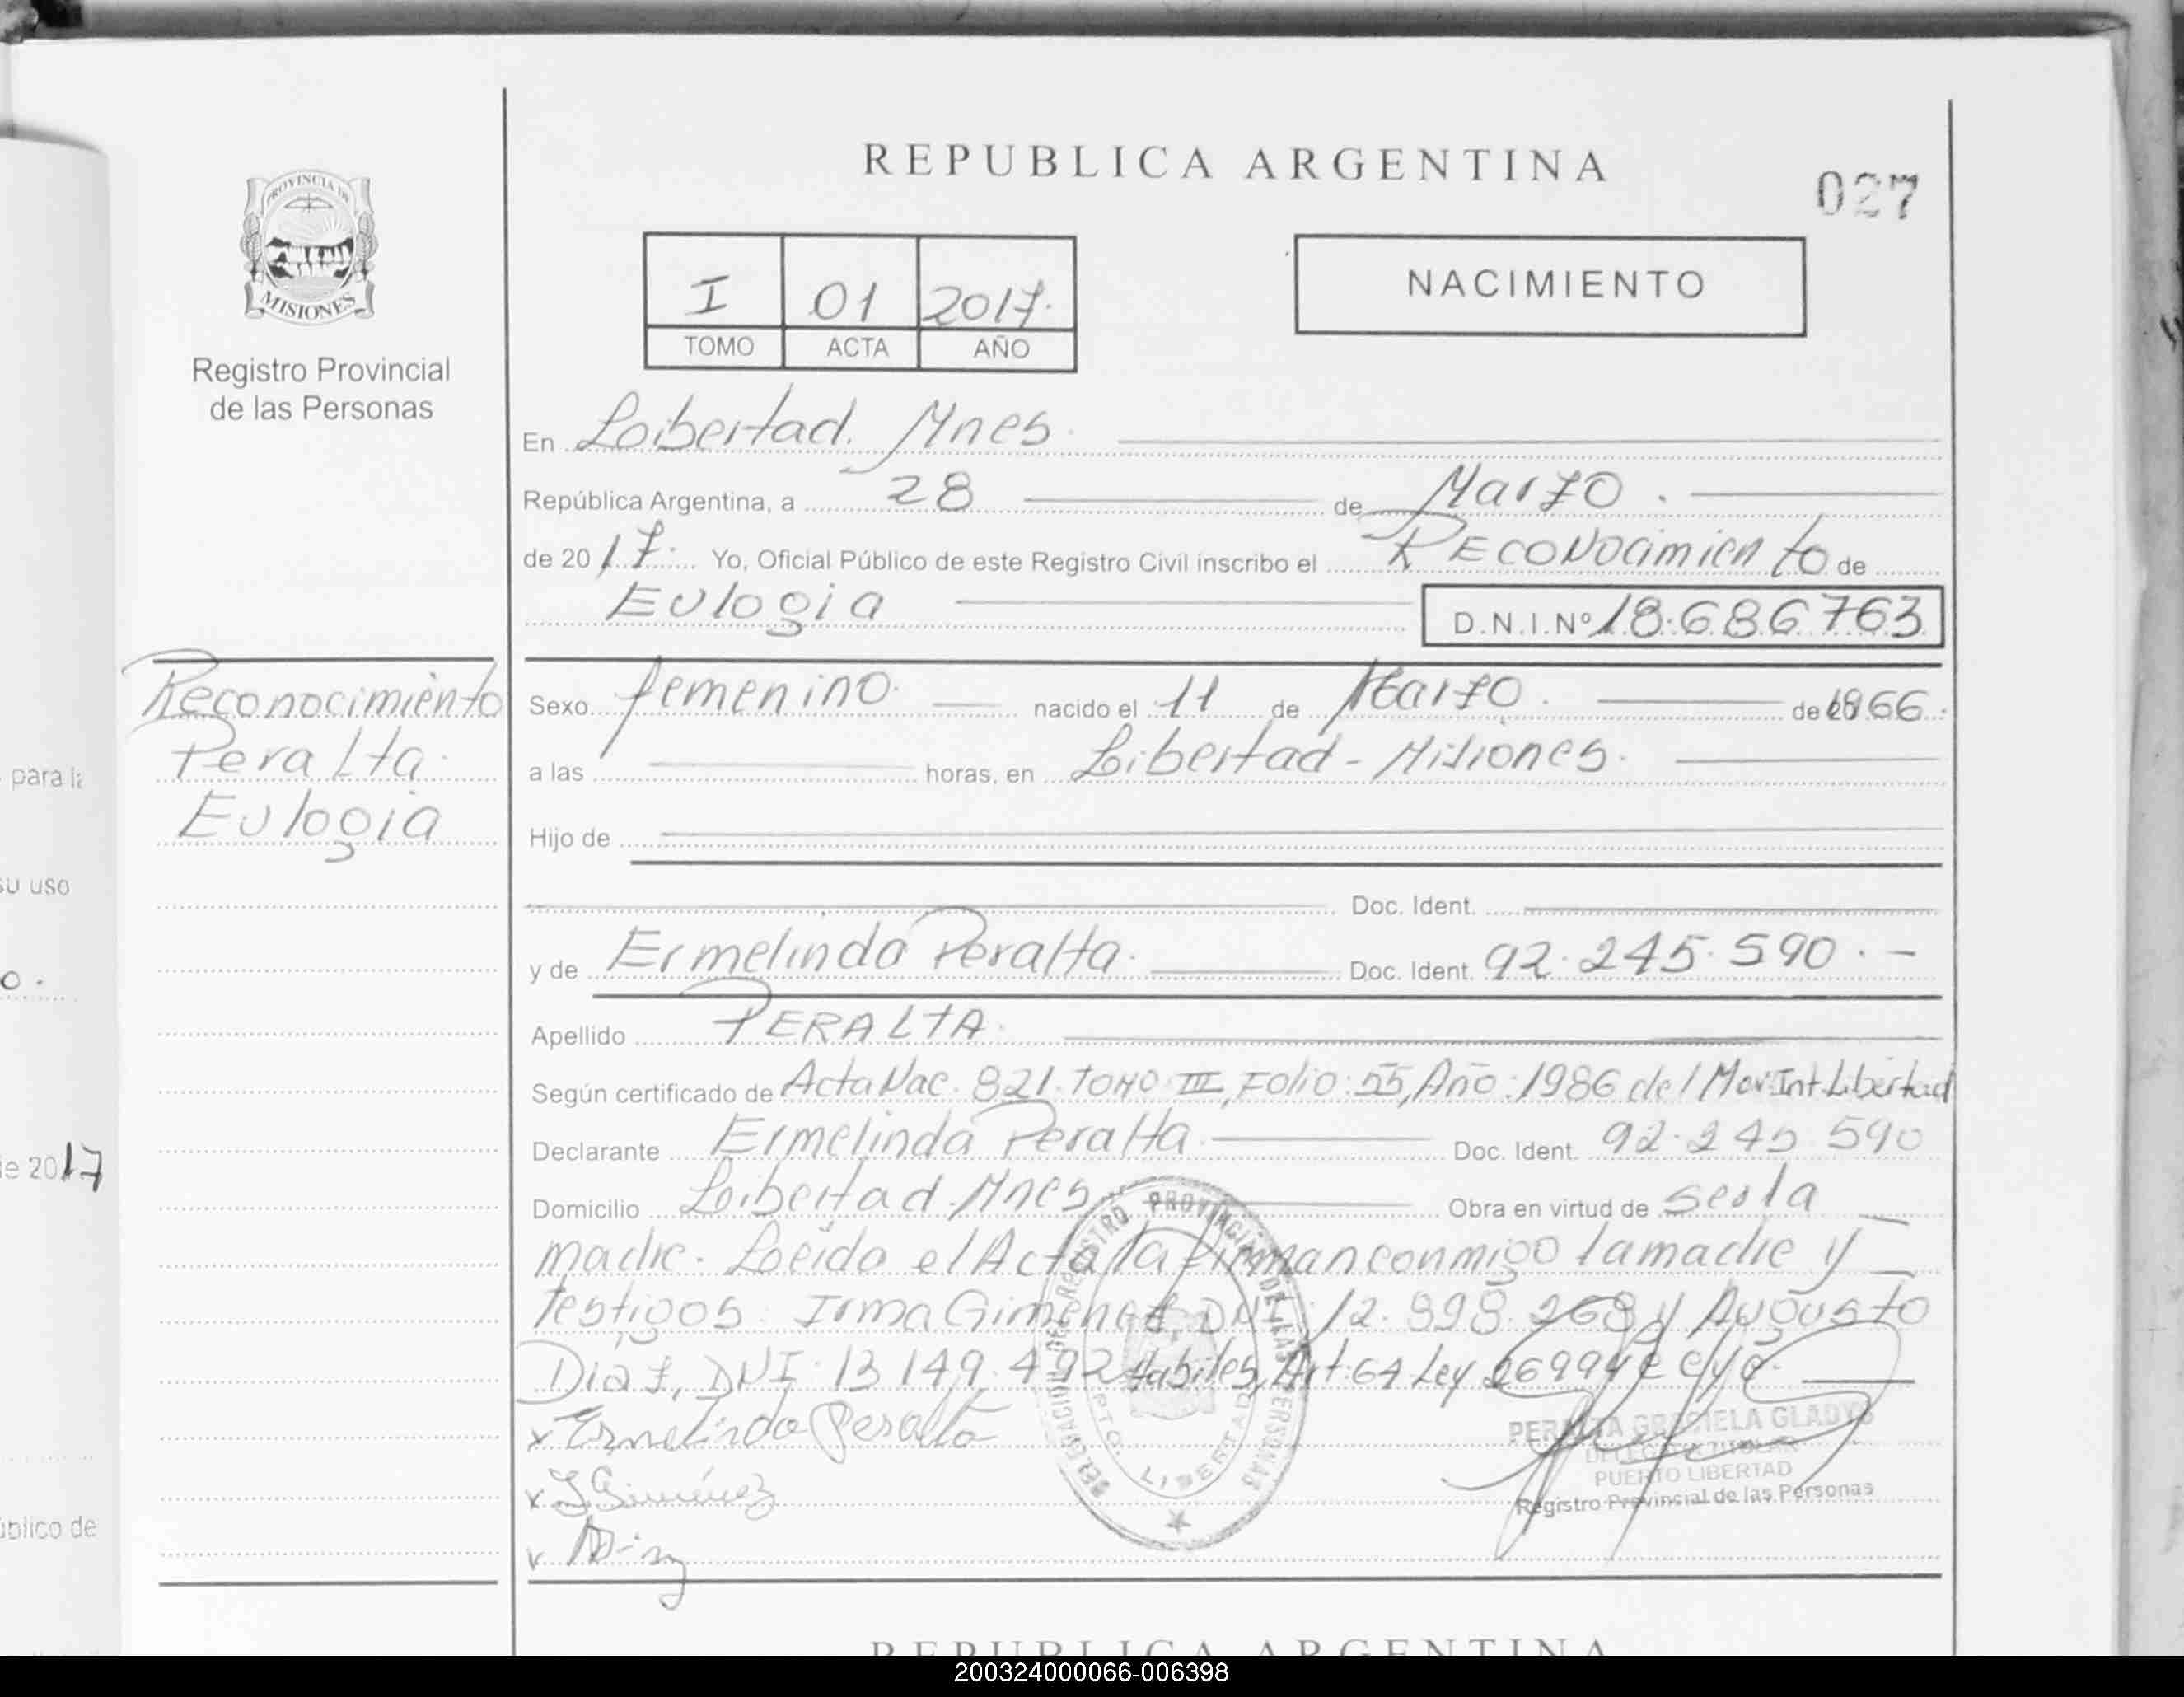 REPUBLICA ARGENTINA
027
PROVINCIA DE
MISIONES
Registro Provincial
de las Personas
I 01 2017.
TOMO ACTA AÑO
NACIMIENTO
En Libertad. Mnes.
República Argentina, a 28 de Marzo.
de 2017. Yo, Oficial Público de este Registro Civil inscribo el RECONOcimiento de
Eulogia D.N.I.Nº 18.686.763
Reconocimiento
Peralta.
Eulogia
Sexo femenino. nacido el 11 de Marzo. de 1966.
a las horas, en Libertad - Misiones.
Hijo de
Doc. Ident.
y de Ermelinda Peralta. Doc. Ident. 92.245.590.-
Apellido PERALTA.
Según certificado de Acta Nac. 821. TOMO III, Folio: 55, Año: 1986 del Mov. Int. Libertad
Declarante Ermelinda Peralta. Doc. Ident. 92.245 590
Domicilio Libertad. Mnes Obra en virtud de ser la
madre. Leida el Acta la firman conmigo la madre y
Testigos: Irma Gimenez DNI: 12.898.268 y Augusto
Diaz, DNI: 13 149.492 Habiles, Art. 64 Ley 26994
x Ermelinda Peralta
x I Giménez
DELEGACION REGISTRO PROVINCIAL DE LAS PERSONAS
PTO. LIBERTAD
PERALTA GRACIELA GLADYS
DELEGADA TITULAR
PUERTO LIBERTAD
Registro Provincial de las Personas
para la
su uso
o.
de 2017
público de
REPUBLICA ARGENTINA
200324000066-006398